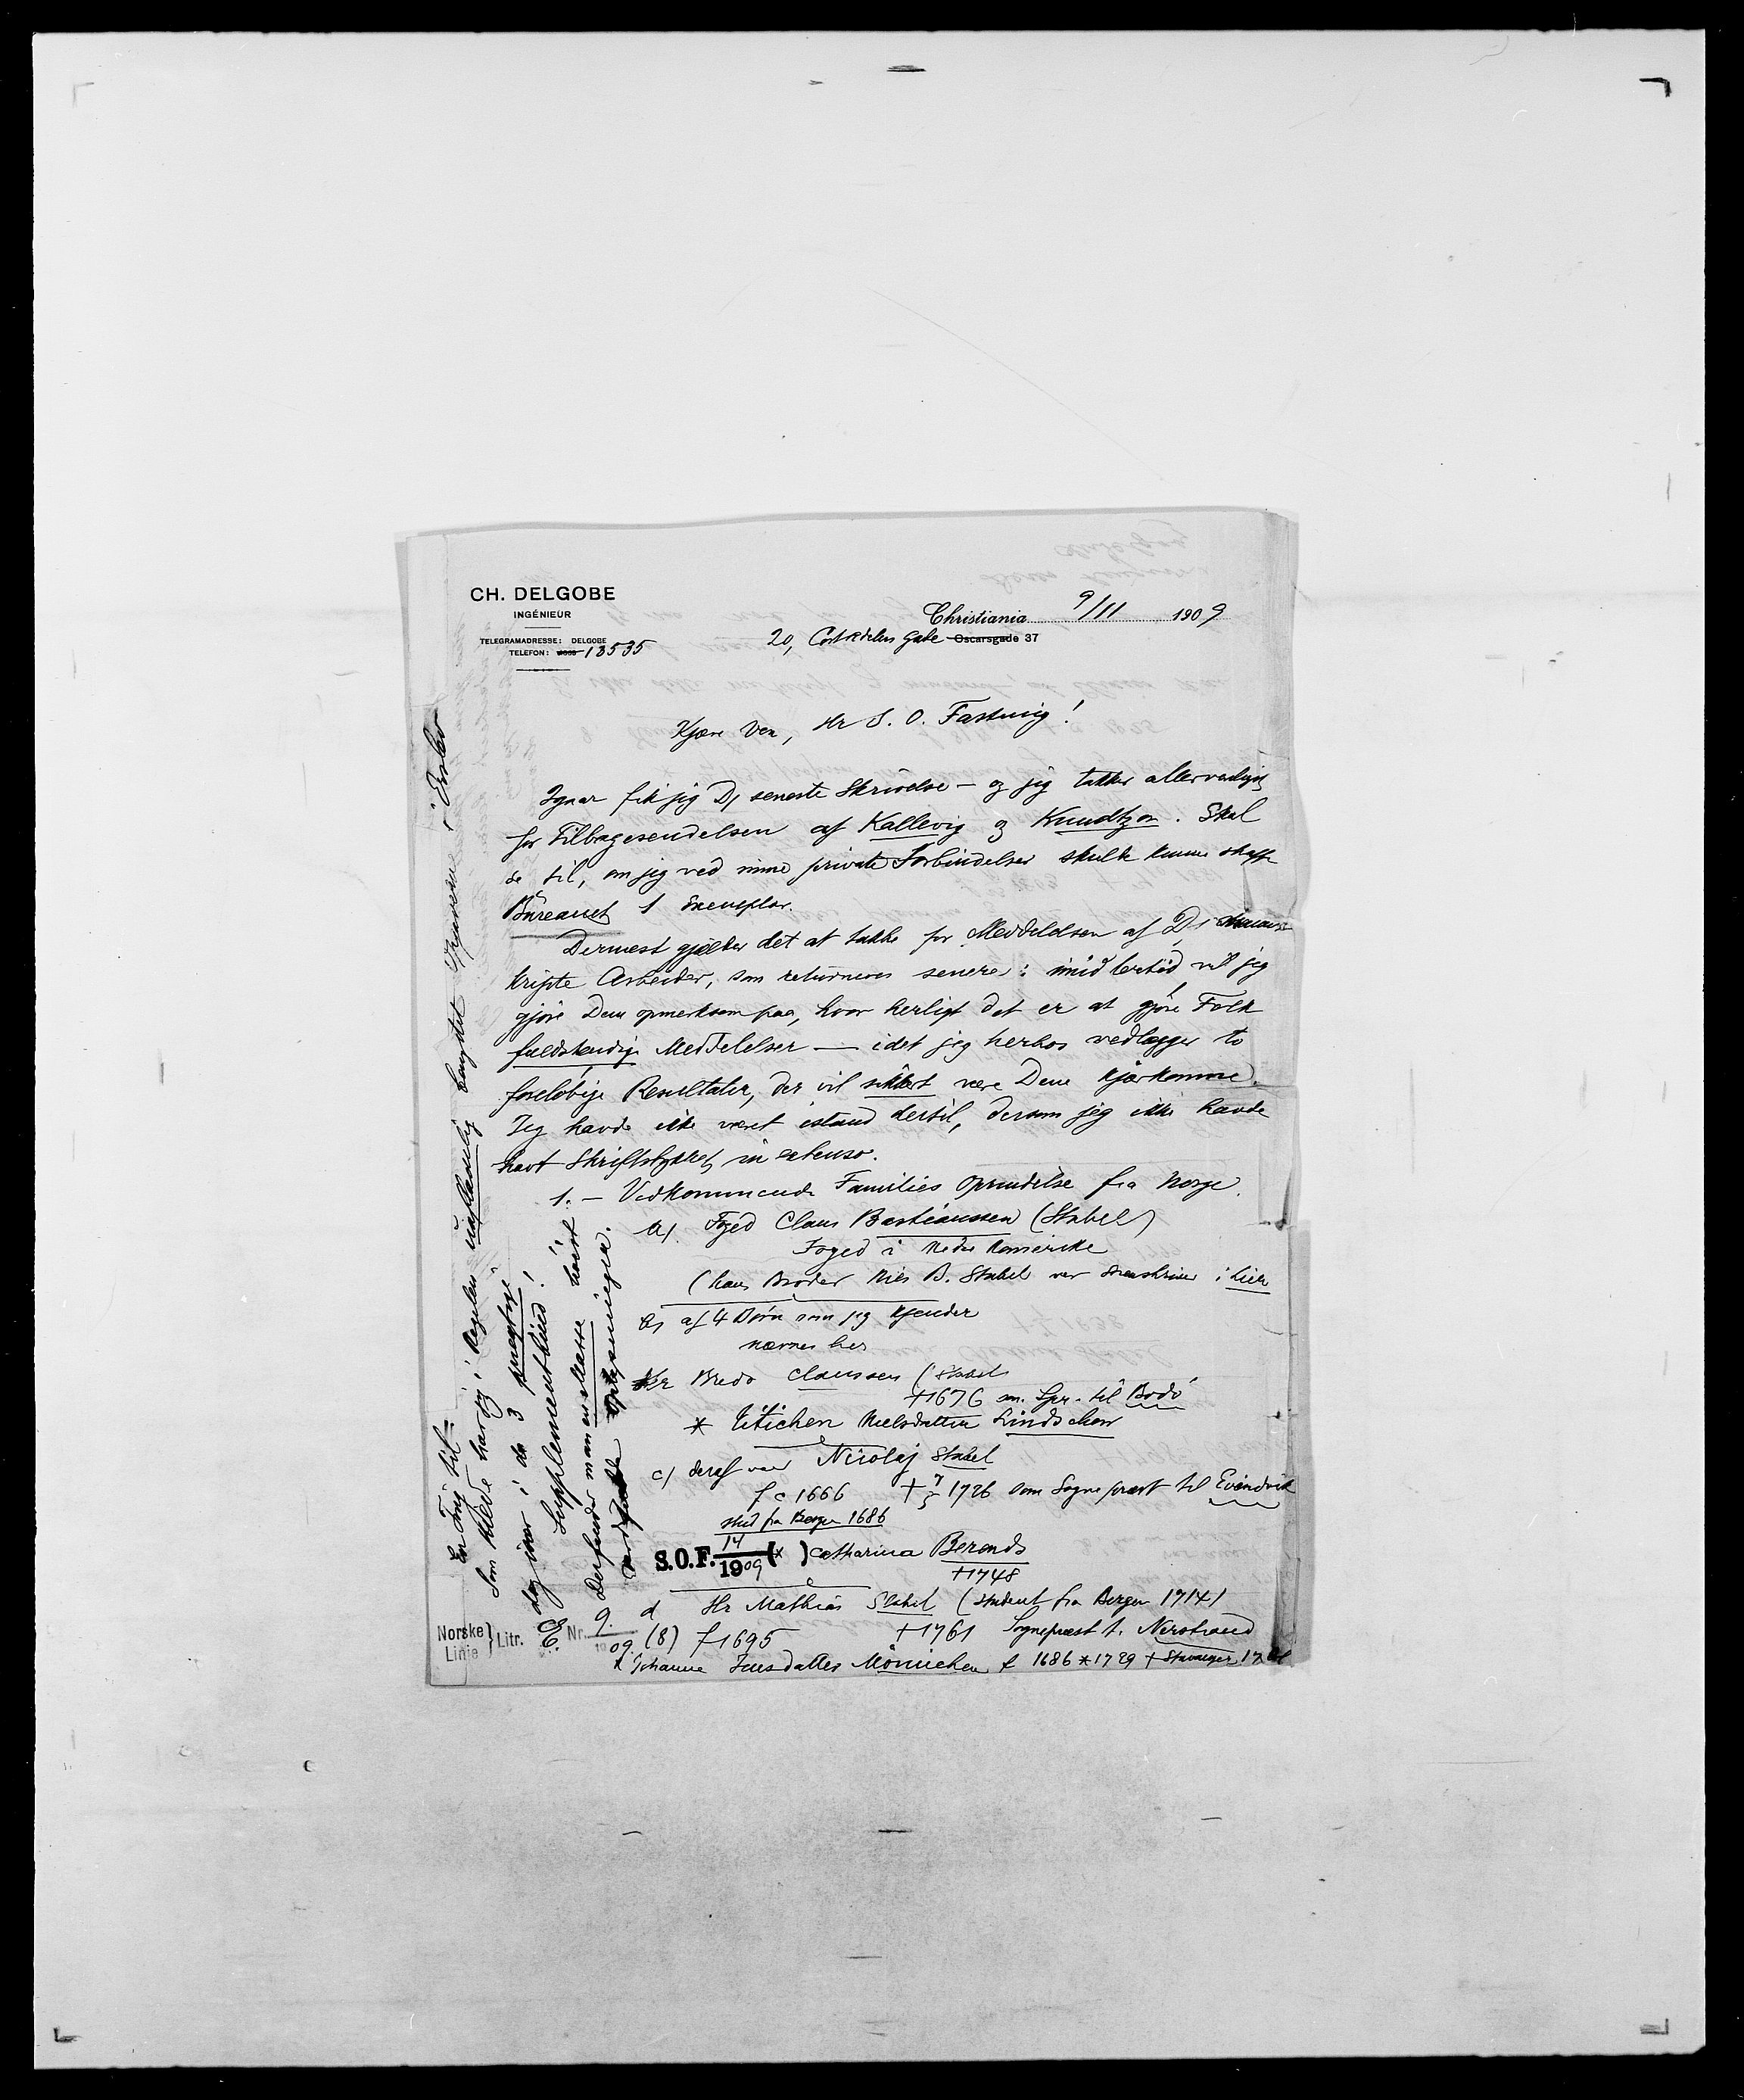 CH. DELGOBE
INGÉNIEUR
TELEGRAMADRESSE: DELGOBE
TELEFON: 13535
Christiania 9/11 1909
20, Gade Oscarsgade 37
Kjære Ven, Hr S. O. Fastning!
Igaar fik jeg Ds seneste Skrivelse — og jeg takker allervenligst
for Tilbagesendelsen af Kallevig og Knudtzon. Skal
se til, om jeg ved mine private Forbindelser skulde kunne skaffe
Büreauet 1 Exemplar.
Dernæst gjælder det at takke for Meddelelsen af Ds
kripte Arbeider, som returneres senere: imidlertid vil jeg
gjöre Dem opmerksom paa, hvor herligt det er at gjöre Folk
fuldstændige Meddelelser — idet jeg herhos vedlægger to
foreløbige Resultater, der vil sikkert være Dem kjærkomne.
Jeg havde ikke været istand dertil, dersom jeg ikke havde
havt Skriftstykket in extenso.
1. — Vedkommende Familiens Oprindelse fra Norge.
a/. Foged Claus Bastianssen (Stabel)
Foged i Nedre Romerike
(hans Broder Nils B. Stabel var Sorenskriver i Lier
b) af 4 Børn som jeg kjender
nævnes her
Hr Bredo Claussen (Stabel
†1676 som Spr. til Bodö
* Titichen Nielsdatter Lindschow
c/ deraf var Nicolaj Stabel
f c 1666 † 7/5 1726 som Sognepræst til Evindvik
stud fra Bergen 1686
S.O.F. 14/1909 (* ) Catharina Berends
†1748
d Hr Mathias Stabel (Student fra Bergen 1714)
(8) f 1695 †1761 Sognepræst t. Nerstrand
* Johanne Jensdatter Mönnichen f 1686 * 1729 † Stavanger
Norske Linie } Litr. E. Nr. 9. 1909
En Ting til:
Som Klæde har jeg i Regelen uafladelig benyttet
dog iver i de 3 prægtige
Supplementbind!
Derfinder man en Masse höist
Oplysninger.